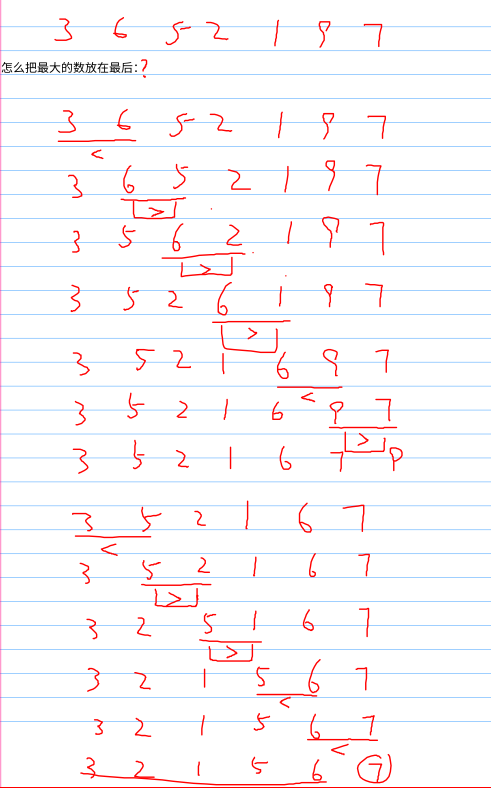 3 6 5 2 1 9 7
怎么把最大的数放在最后：?
3 6 5 2 1 9 7
<
3 6 5 2 1 9 7
>
3 5 6 2 1 9 7
>
3 5 2 6 1 9 7
>
3 5 2 1 6 9 7
<
3 5 2 1 6 9 7
>
3 5 2 1 6 7 9
3 5 2 1 6 7
<
3 5 2 1 6 7
>
3 2 5 1 6 7
>
3 2 1 5 6 7
<
3 2 1 5 6 7
<
3 2 1 5 6 7